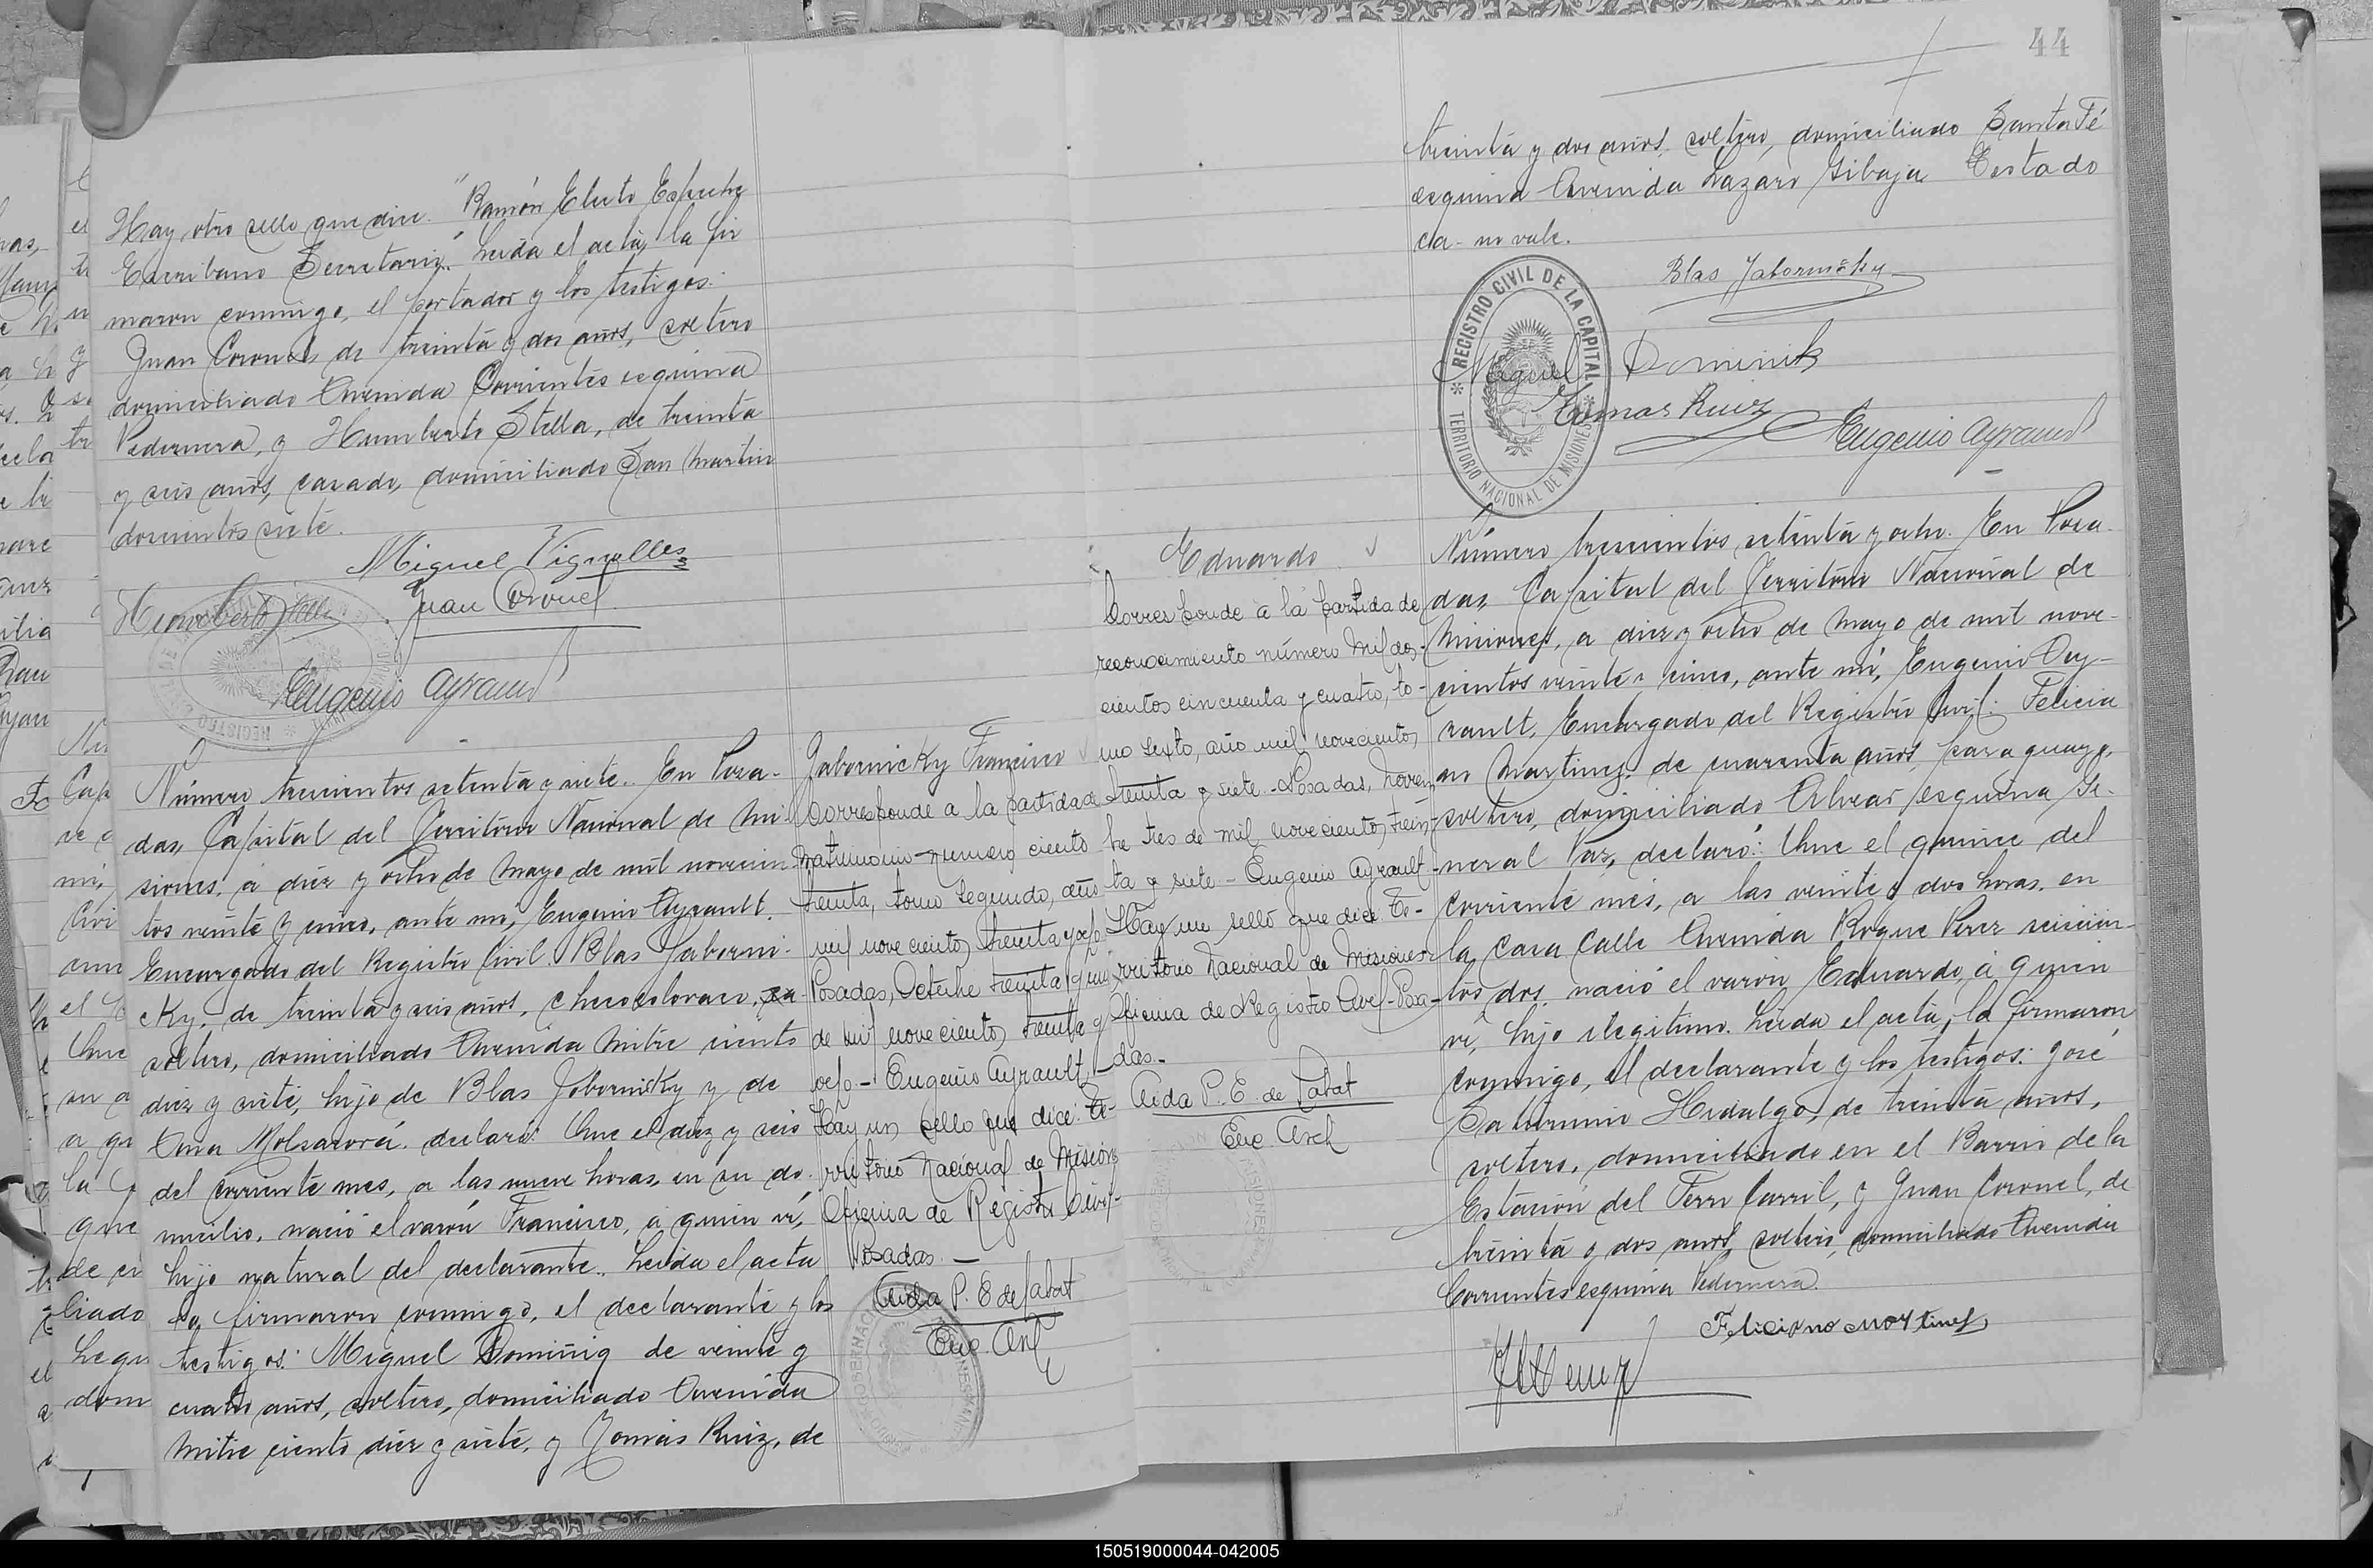 44
Hay otro sello que dice: "Ramón Electo Espeche
Escribano Secretario". Leída el acta, la fir
maron conmigo, el portador y los testigos:
Juan Coronel, de treinta y dos años, soltero
domiciliado Avenida Corrientes esquina
Pedernera, y Humberto Stella, de treinta
y seis años, casado, domiciliado San Martin
doscientos siete.
Miguel Vignolles
Humberto Stella
Juan Coronel
Eugenio Ayrault
Número trescientos setenta y siete. En Posa-
das, Capital del Territorio Nacional de Mi
siones, a diez y ocho de Mayo de mil novecien
tos veinte y cinco, ante mí, Eugenio Ayrault,
Encargado del Registro Civil. Blas Jaborni-
cky, de treinta y seis años, checoeslovaco,
soltero, domiciliado Avenida Mitre ciento
diez y siete, hijo de Blas Jobornisky y de
Ana declaró: Que el diez y seis
del corriente mes, a las nueve horas, en su do-
micilio, nació el varón Francisco, a quien ví,
hijo natural del declarante. Leída el acta
la firmaron conmigo, el declarante y los
testigos: Miguel Dominig de veinte y
cuatro años, soltero, domiciliado Avenida
Mitre ciento diez y siete, y Tomás Ruiz, de
Jabornicky Francisco
Corresponde a la partida de
matrimonio número ciento
treinta, tomo segundo, año
mil novecientos treinta y ocho
Posadas, Octubre treinta y uno
de mil novecientos treinta y
ocho.- Eugenio Ayrault.-
Hay un sello que dice: Te-
rritorio Nacional de Misiones
Oficina de Registro Civil-
Posadas.-
Aida P. E. de Labat
Enc. Arch
treinta y dos años, soltero, domiciliado Santa Fé
esquina Avenida Lázaro Gibaja Testado
ca- no vale.
Blas Jabornicky
REGISTRO CIVIL DE LA CAPITAL
TERRITORIO NACIONAL DE MISIONES
Miguel Dominik
Tomas Ruiz
Eugenio Ayrault
Eduardo
Corresponde a la partida de
reconocimiento número mil dos-
cientos cincuenta y cuatro, to-
mo sexto, año mil novecientos
treinta y siete.- Posadas, Noviem
bre tres de mil novecientos trein-
ta y siete.- Eugenio Ayrault-
Hay un sello que dice Te-
rritorio Nacional de Misiones
Oficina de Registro Civil-Posa-
das.-
Aida P. E. de Labat
Enc. Arch
Número trescientos setenta y ocho. En Posa-
das, Capital del Territorio Nacional de
Misiones, a diez y ocho de Mayo de mil nove-
cientos veinte y cinco, ante mí, Eugenio Ay-
rault, Encargado del Registro Civil: Felicia
no Martinez, de cuarenta años, paraguayo,
soltero, domiciliado Alvear esquina Ge-
neral Paz, declaró: Que el quince del
corriente mes, a las veinte y dos horas, en
la casa calle Avenida Roque Perez seiscien-
tos dos, nació el varón Eduardo, a quien
ví, hijo ilegítimo. Leída el acta, la firmaron
conmigo, el declarante y los testigos: José
Saturnino Hidalgo, de treinta años,
soltero, domiciliado en el Barrio de la
Estación del Ferro Carril, y Juan Coronel, de
treinta y dos años, soltero, domiciliado Avenida
Corrientes esquina Pedernera.
Feliciano Martinez
150519000044-042005